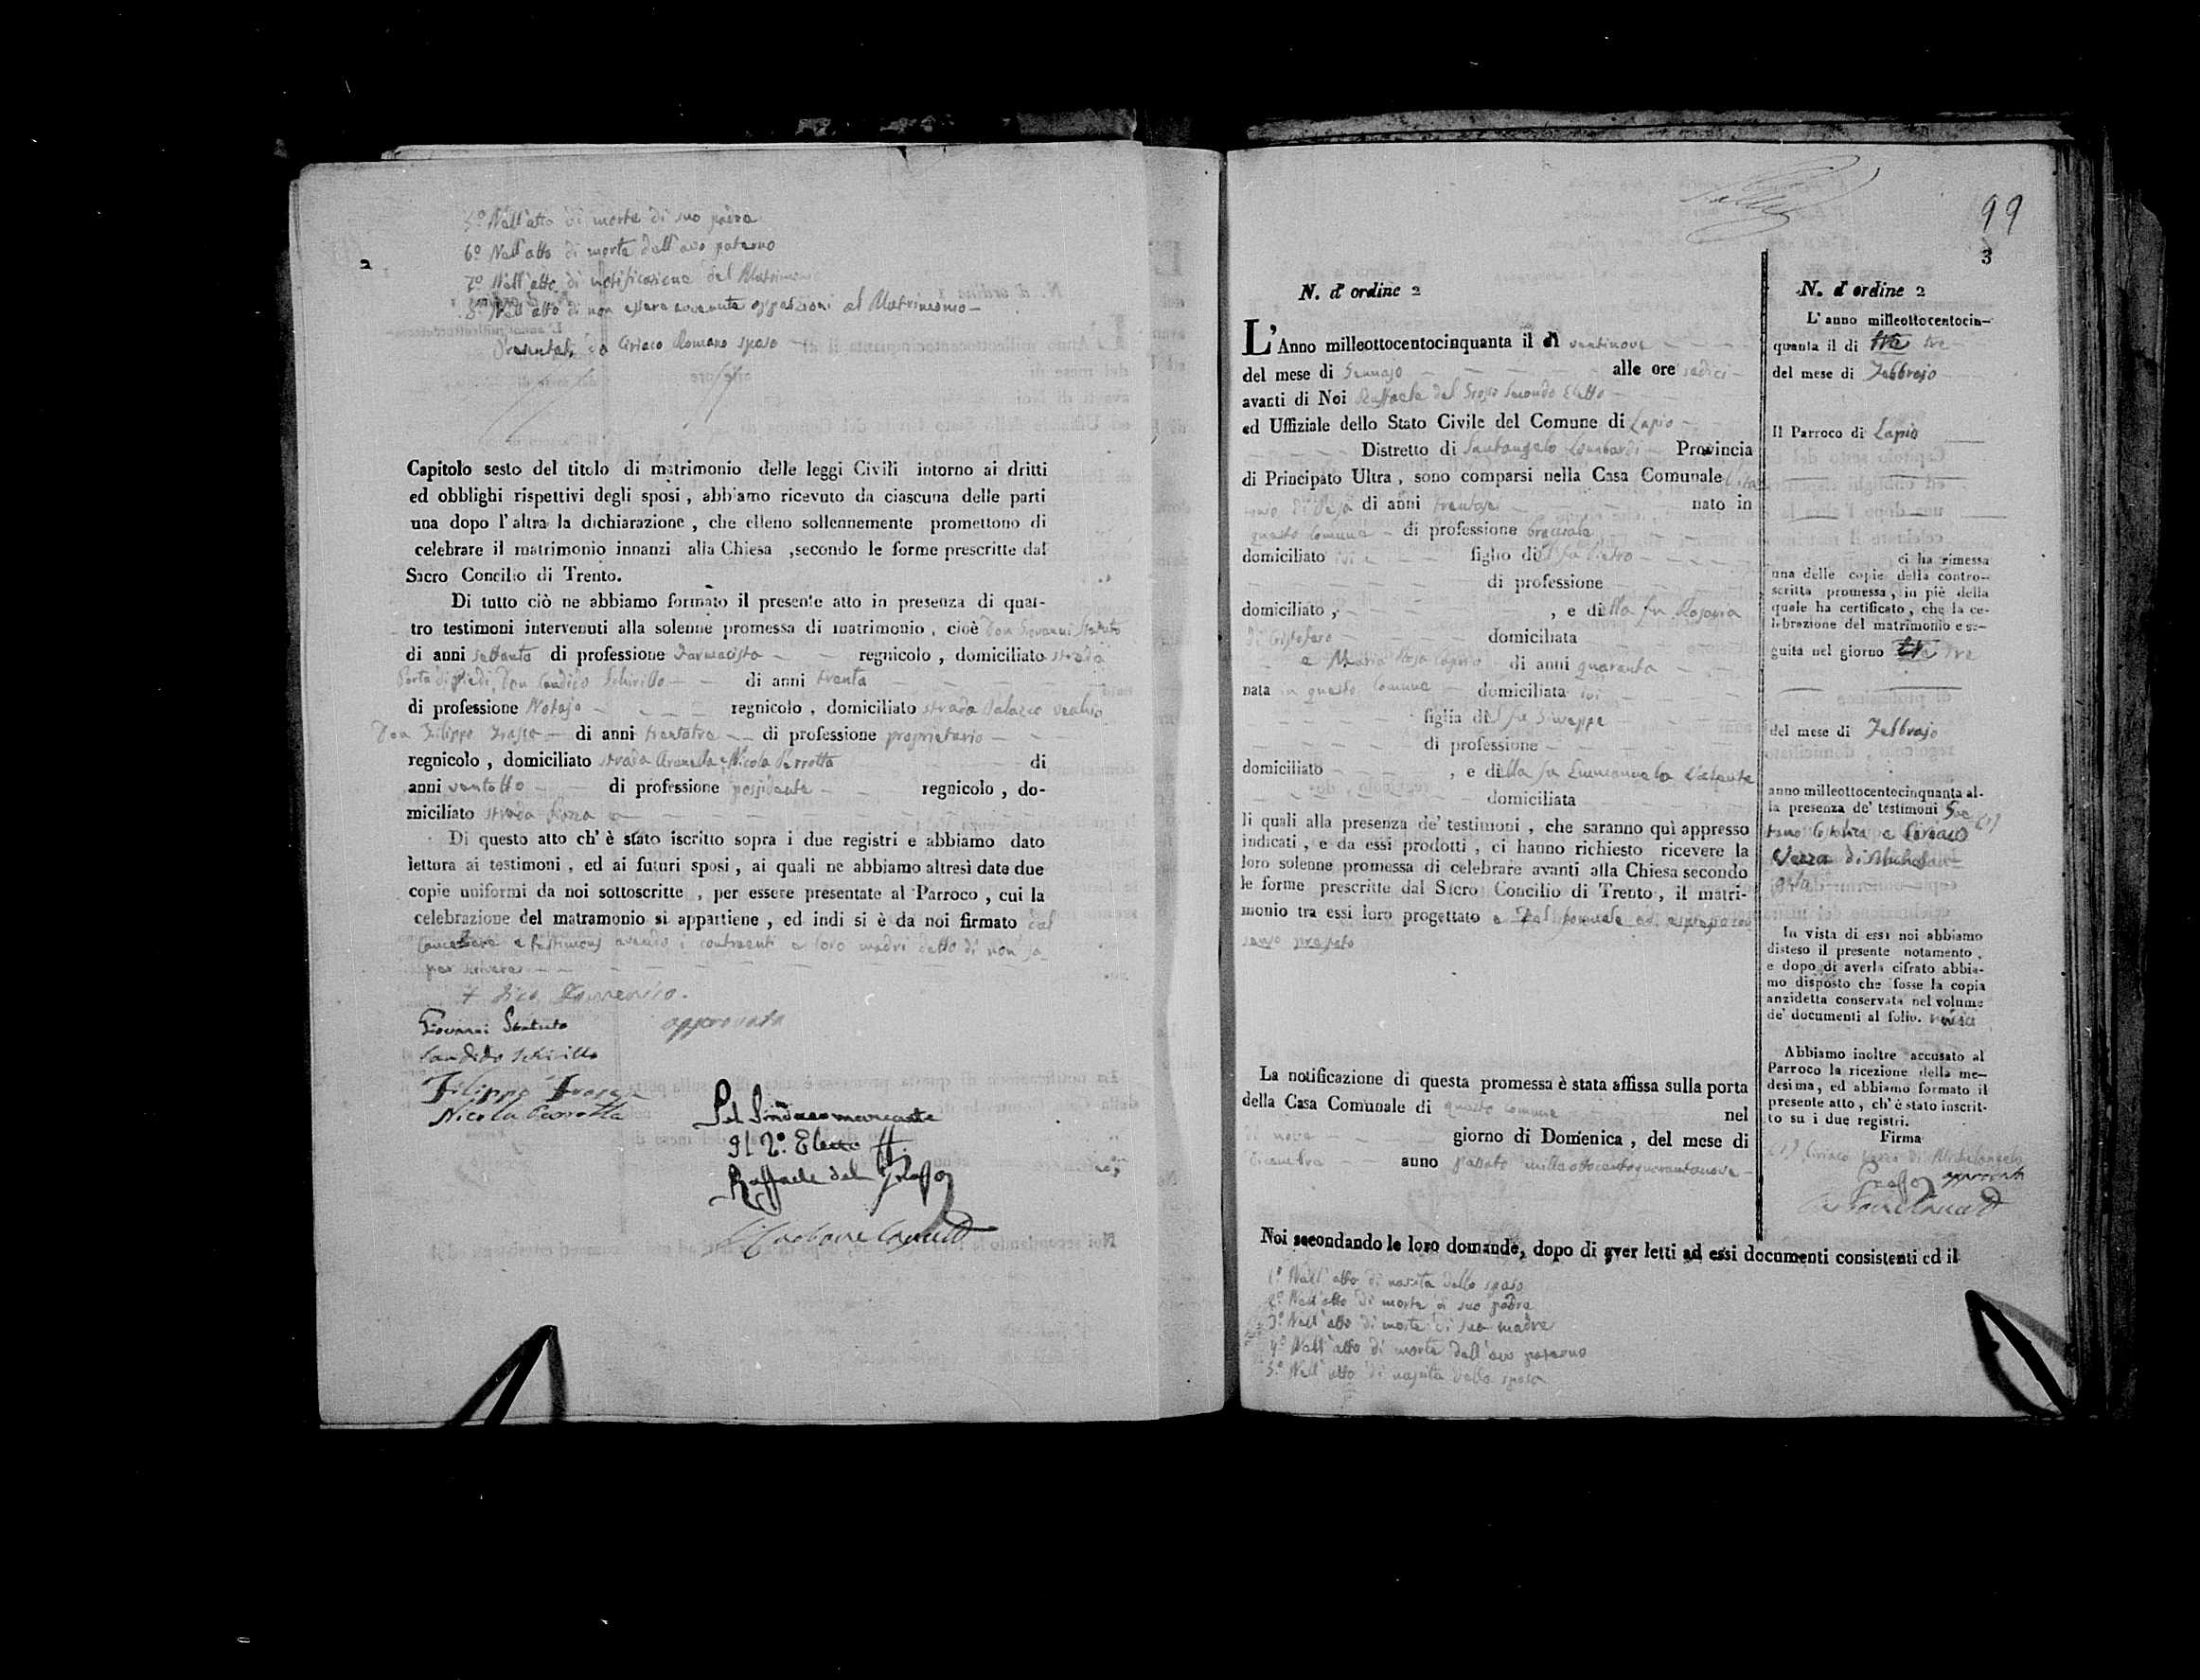 2
5º Nell'atto di morte di suo padre
6º Nell'atto di morte dell'avo paterno
7º Nell'atto di notificazione del Matrimonio
8º Nell'atto di non essere avvenute opposizioni al Matrimonio
Presentati da Ciriaco Romano sposo
Capitolo sesto del titolo di matrimonio delle leggi Civili intorno ai dritti
ed obblighi rispettivi degli sposi, abbiamo ricevuto da ciascuna delle parti
una dopo l'altra la dichiarazione, che elleno sollennemente promettono di
celebrare il matrimonio innanzi alla Chiesa ,secondo le forme prescritte dal
Sacro Concilio di Trento.
Di tutto ciò ne abbiamo formato il presente atto in presenza di quat-
tro testimoni intervenuti alla solenne promessa di matrimonio, cioè Don Giovanni Statuto
di anni settanta di professione Farmacista regnicolo, domiciliato strada
Porta di piedi, Don Candido Schirillo di anni trenta
di professione Notajo regnicolo, domiciliato strada Palazzo vecchio
Don Filippo Frasse di anni trentatre di professione proprietario
regnicolo, domiciliato strada Arenella e Nicola Perrotta di
anni ventotto di professione possidente regnicolo, do-
miciliato strada Piazza
Di questo atto ch'è stato iscritto sopra i due registri e abbiamo dato
lettura ai testimoni, ed ai futuri sposi, ai quali ne abbiamo altresì date due
copie uniformi da noi sottoscritte, per essere presentate al Parroco, cui la
celebrazione del matramonio si appartiene, ed indi si è da noi firmato dal
Cancelliere e testimoni avendo i contraenti e loro madri detto di non sa-
per scrivere
+ dico Domenico.
Giovanni Statuto approvata
Candido Schirillo
Filippo
Nicola Perrotta
Pel Sindaco mancante
Il 2º. Eletto ff.
Raffaele del Grosso
99
3
N. d'ordine 2
L'Anno milleottocentocinquanta il dì ventinove
del mese di Gennajo alle ore sedici
avanti di Noi Raffaele del Grosso Secondo Eletto
ed Uffiziale dello Stato Civile del Comune di Lapio
Distretto di Santangelo Lombardi Provincia
di Principato Ultra, sono comparsi nella Casa Comunale
di anni trentasei nato in
questo Comune di professione bracciale
domiciliato ivi figlio di fu Pietro
di professione
domiciliato, , e di lla fu Rosaria
di Cristofaro domiciliata
e Maria Rosa Caprio di anni quaranta
nata in questo Comune domiciliata ivi
figlia di fu Giuseppe
di professione
domiciliato , e di lla fu Emmanuela
domiciliata
li quali alla presenza de' testimoni, che saranno quì appresso
indicati, e da essi prodotti, ci hanno richiesto ricevere la
loro solenne promessa di celebrare avanti alla Chiesa secondo
le forme prescritte dal Sacro Concilio di Trento, il matri-
monio tra essi loro progettato
La notificazione di questa promessa è stata affissa sulla porta
della Casa Comunale di questo Comune nel
dì nove giorno di Domenica, del mese di
Dicembre anno passato milleottocentoquarantanove
Noi secondando le loro domande, dopo di aver letti ad essi documenti consistenti ed il
1º Nell'atto di nascita dello sposo
2º Nell'atto di morte di suo padre
3º Nell'atto di morte di sua madre
4º Nell'atto di morte dell'avo paterno
5º Nell'atto di nascita della sposa
N. d'ordine 2
L'anno milleottocentocin-
quanta il di tre
del mese di Febbrajo
Il Parroco di Lapio
ci ha rimessa
una delle copie della contro-
scritta promessa, in piè della
quale ha certificato, che la ce-
lebrazione del matrimonio e se-
guita nel giorno tre
del mese di Febbrajo
anno milleottocentocinquanta al-
la presenza de' testimoni
e Ciriaco
di Michelan-
In vista di essi noi abbiamo
disteso il presente notamento,
e dopo di averla cifrato abbia-
mo disposto che fosse la copia
anzidetta conservata nel volume
de' documenti al folio.
Abbiamo inoltre accusato al
Parroco la ricezione della me-
desima, ed abbiamo formato il
presente atto, ch'è stato inscrit-
to su i due registri.
Firma
(1) Ciriaco di Michelangelo
approvata